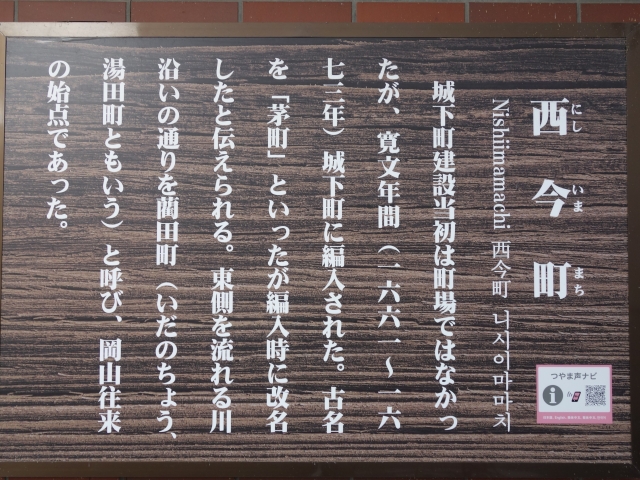 西今町
にし いま まち
Nishiimamachi 西今町 니시이마마치
城下町建設当初は町場ではなかっ
たが、寛文年間（一六六一〜一六
七三年）城下町に編入された。古名
を「茅町」といったが編入時に改名
したと伝えられる。東側を流れる川
沿いの通りを藺田町（いだのちょう、
湯田町ともいう）と呼び、岡山往来
の始点であった。
つやま声ナビ